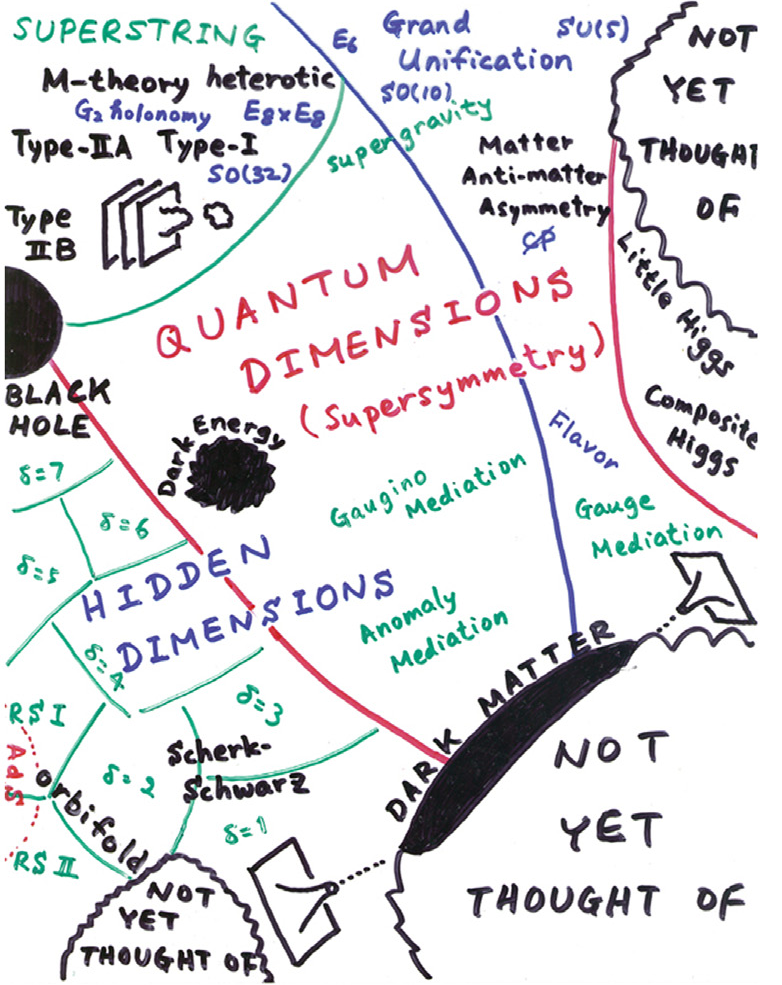 SUPERSTRING
M-theory heterotic
G₂ holonomy E₈xE₈
Type-IIA Type-I
SO(32)
Type
IIB
E₆
Grand
Unification
SU(5)
SO(10)
supergravity
Matter
Anti-matter
Asymmetry
CP
NOT
YET
THOUGHT
OF
Little Higgs
Composite
Higgs
QUANTUM
DIMENSIONS
(Supersymmetry)
BLACK
HOLE
Dark Energy
Flavor
Gaugino
Mediation
Gauge
Mediation
Anomaly
Mediation
δ=7
δ=6
δ=5
HIDDEN
DIMENSIONS
δ=4
δ=3
RS I
AdS
orbifold
δ=2
Scherk-
Schwarz
δ=1
RS II
DARK MATTER
NOT
YET
THOUGHT OF
NOT
YET
THOUGHT OF